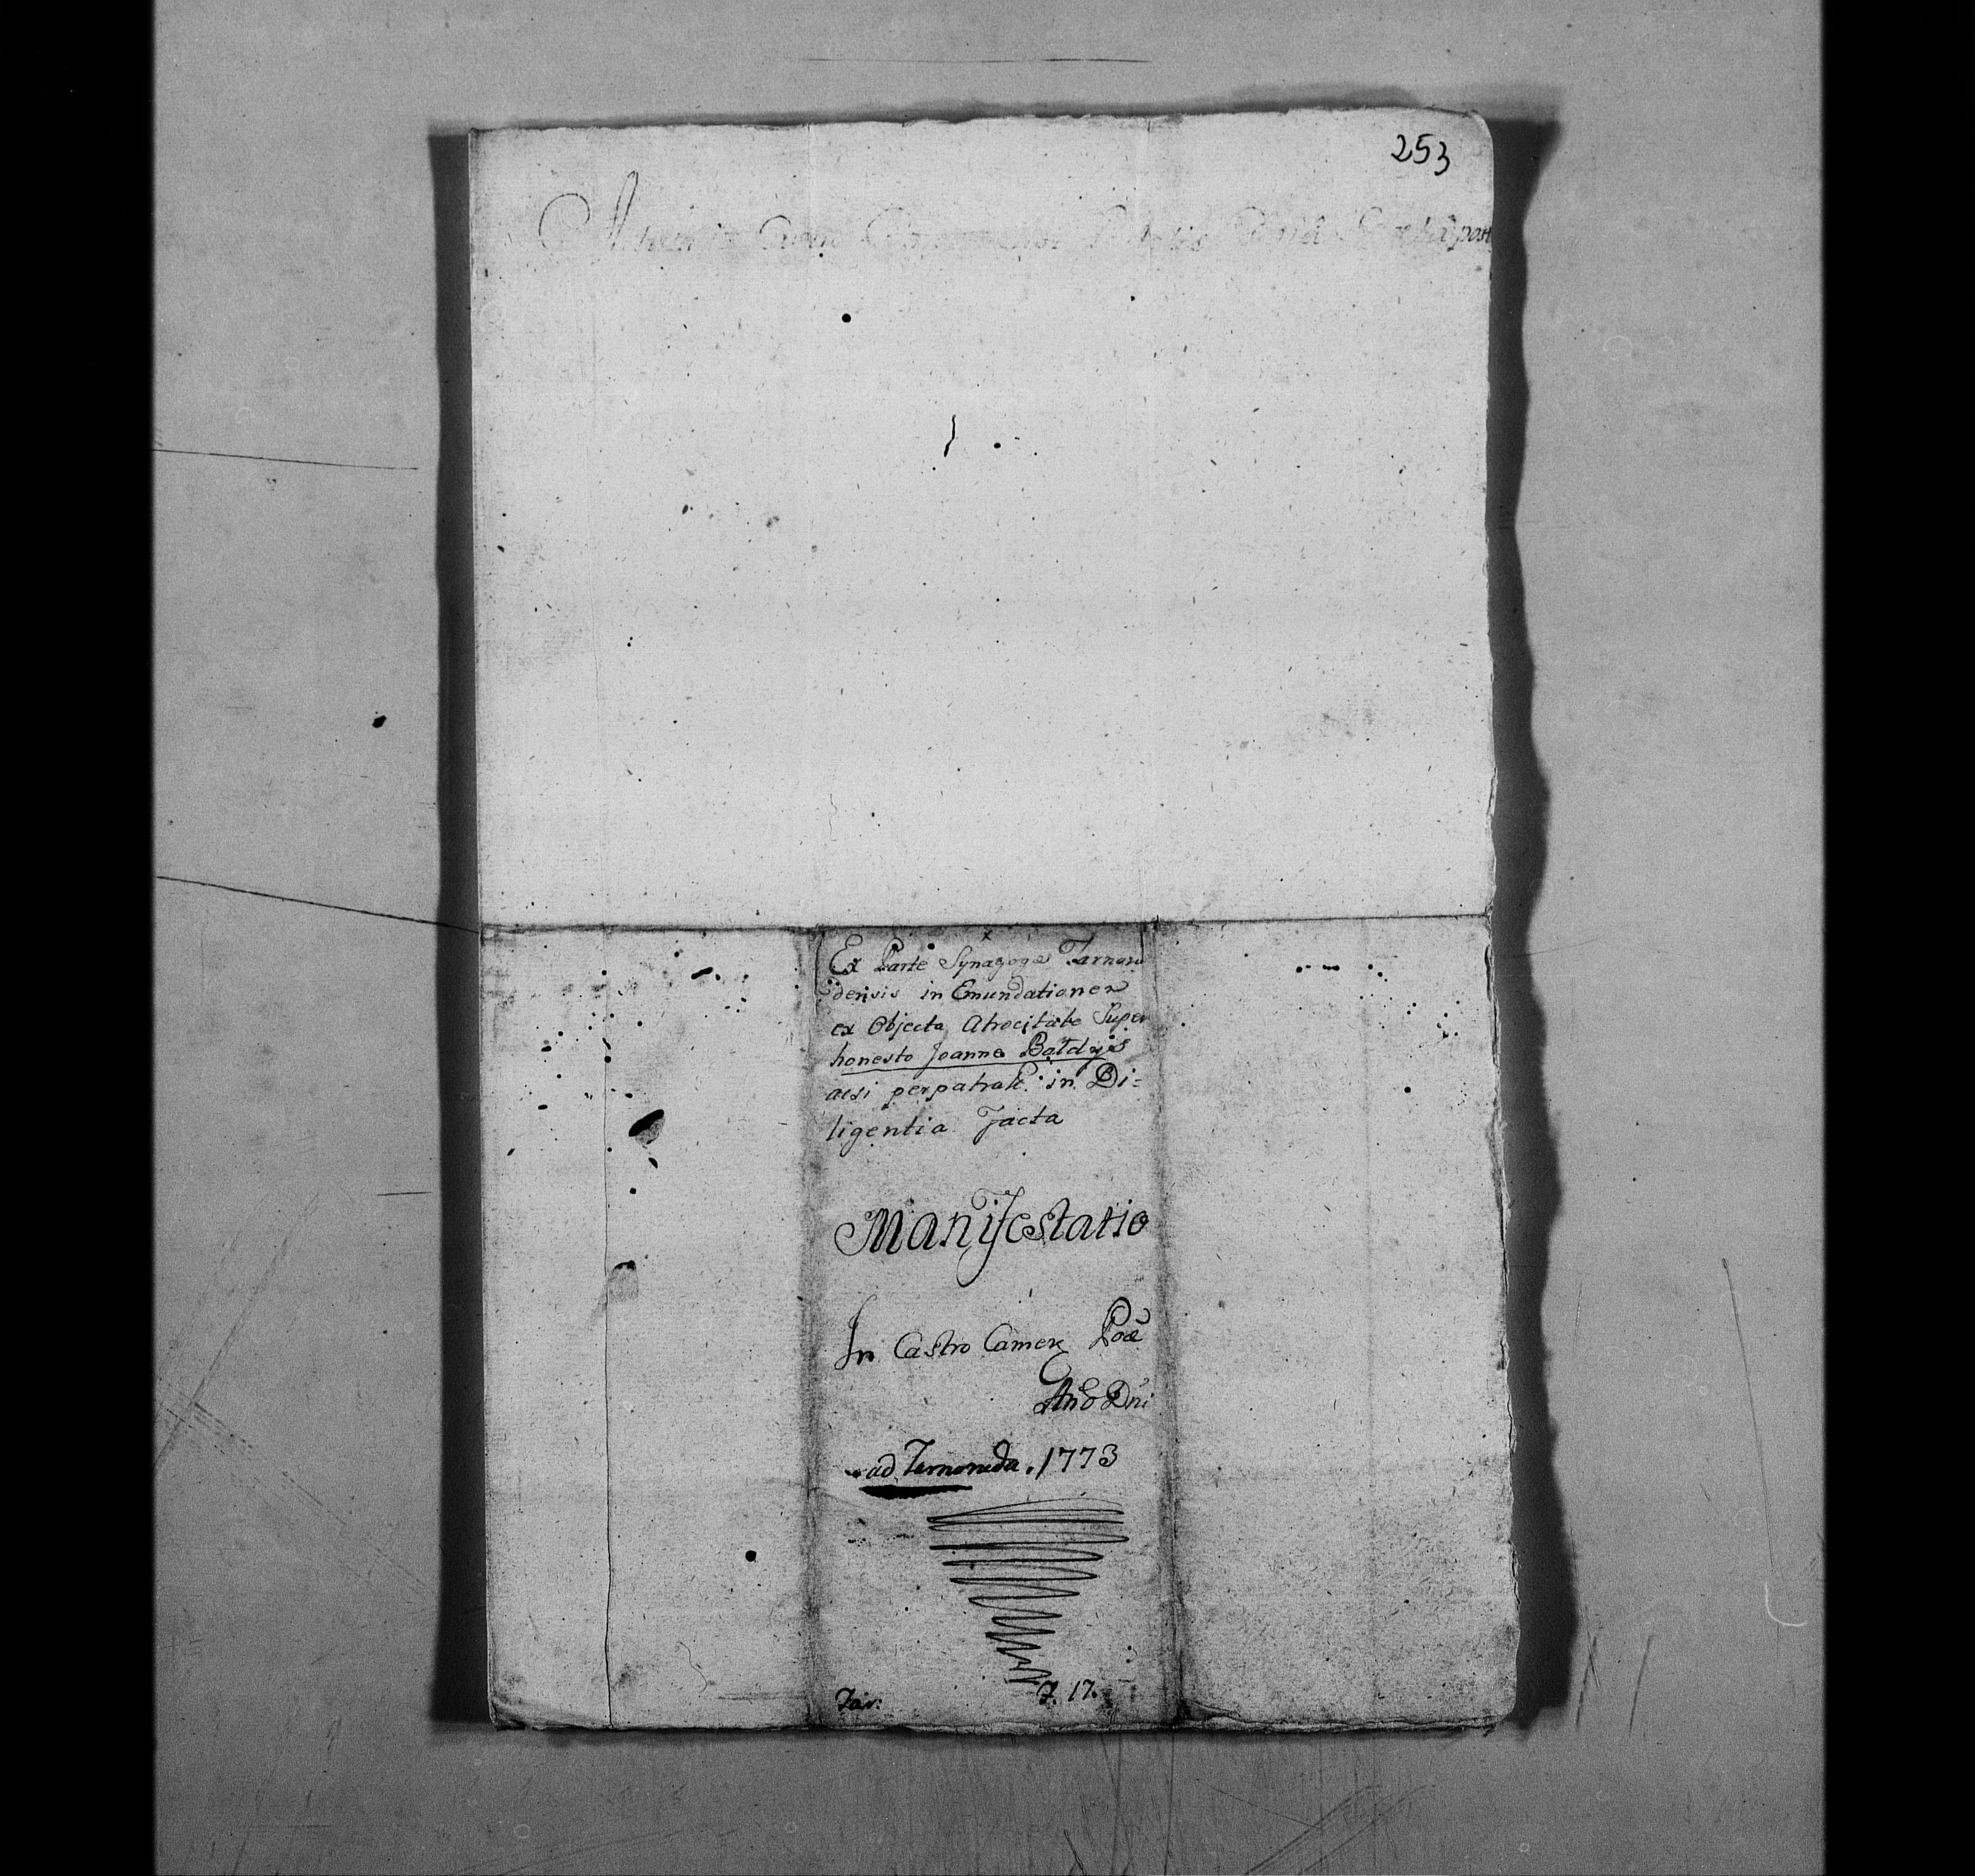 253
post
Ex Parte Synagogæ Tarnoru
densis in Emundationem
ex Objecta Atrocitate Super
honesto Joanne Bałdys
acsi perpatrate in Di=
ligentia Facta
Manifestatio
In Castro Camer Poæ
Ano Dni
ad Tarnoruda. 1773
Tar: F. 17.